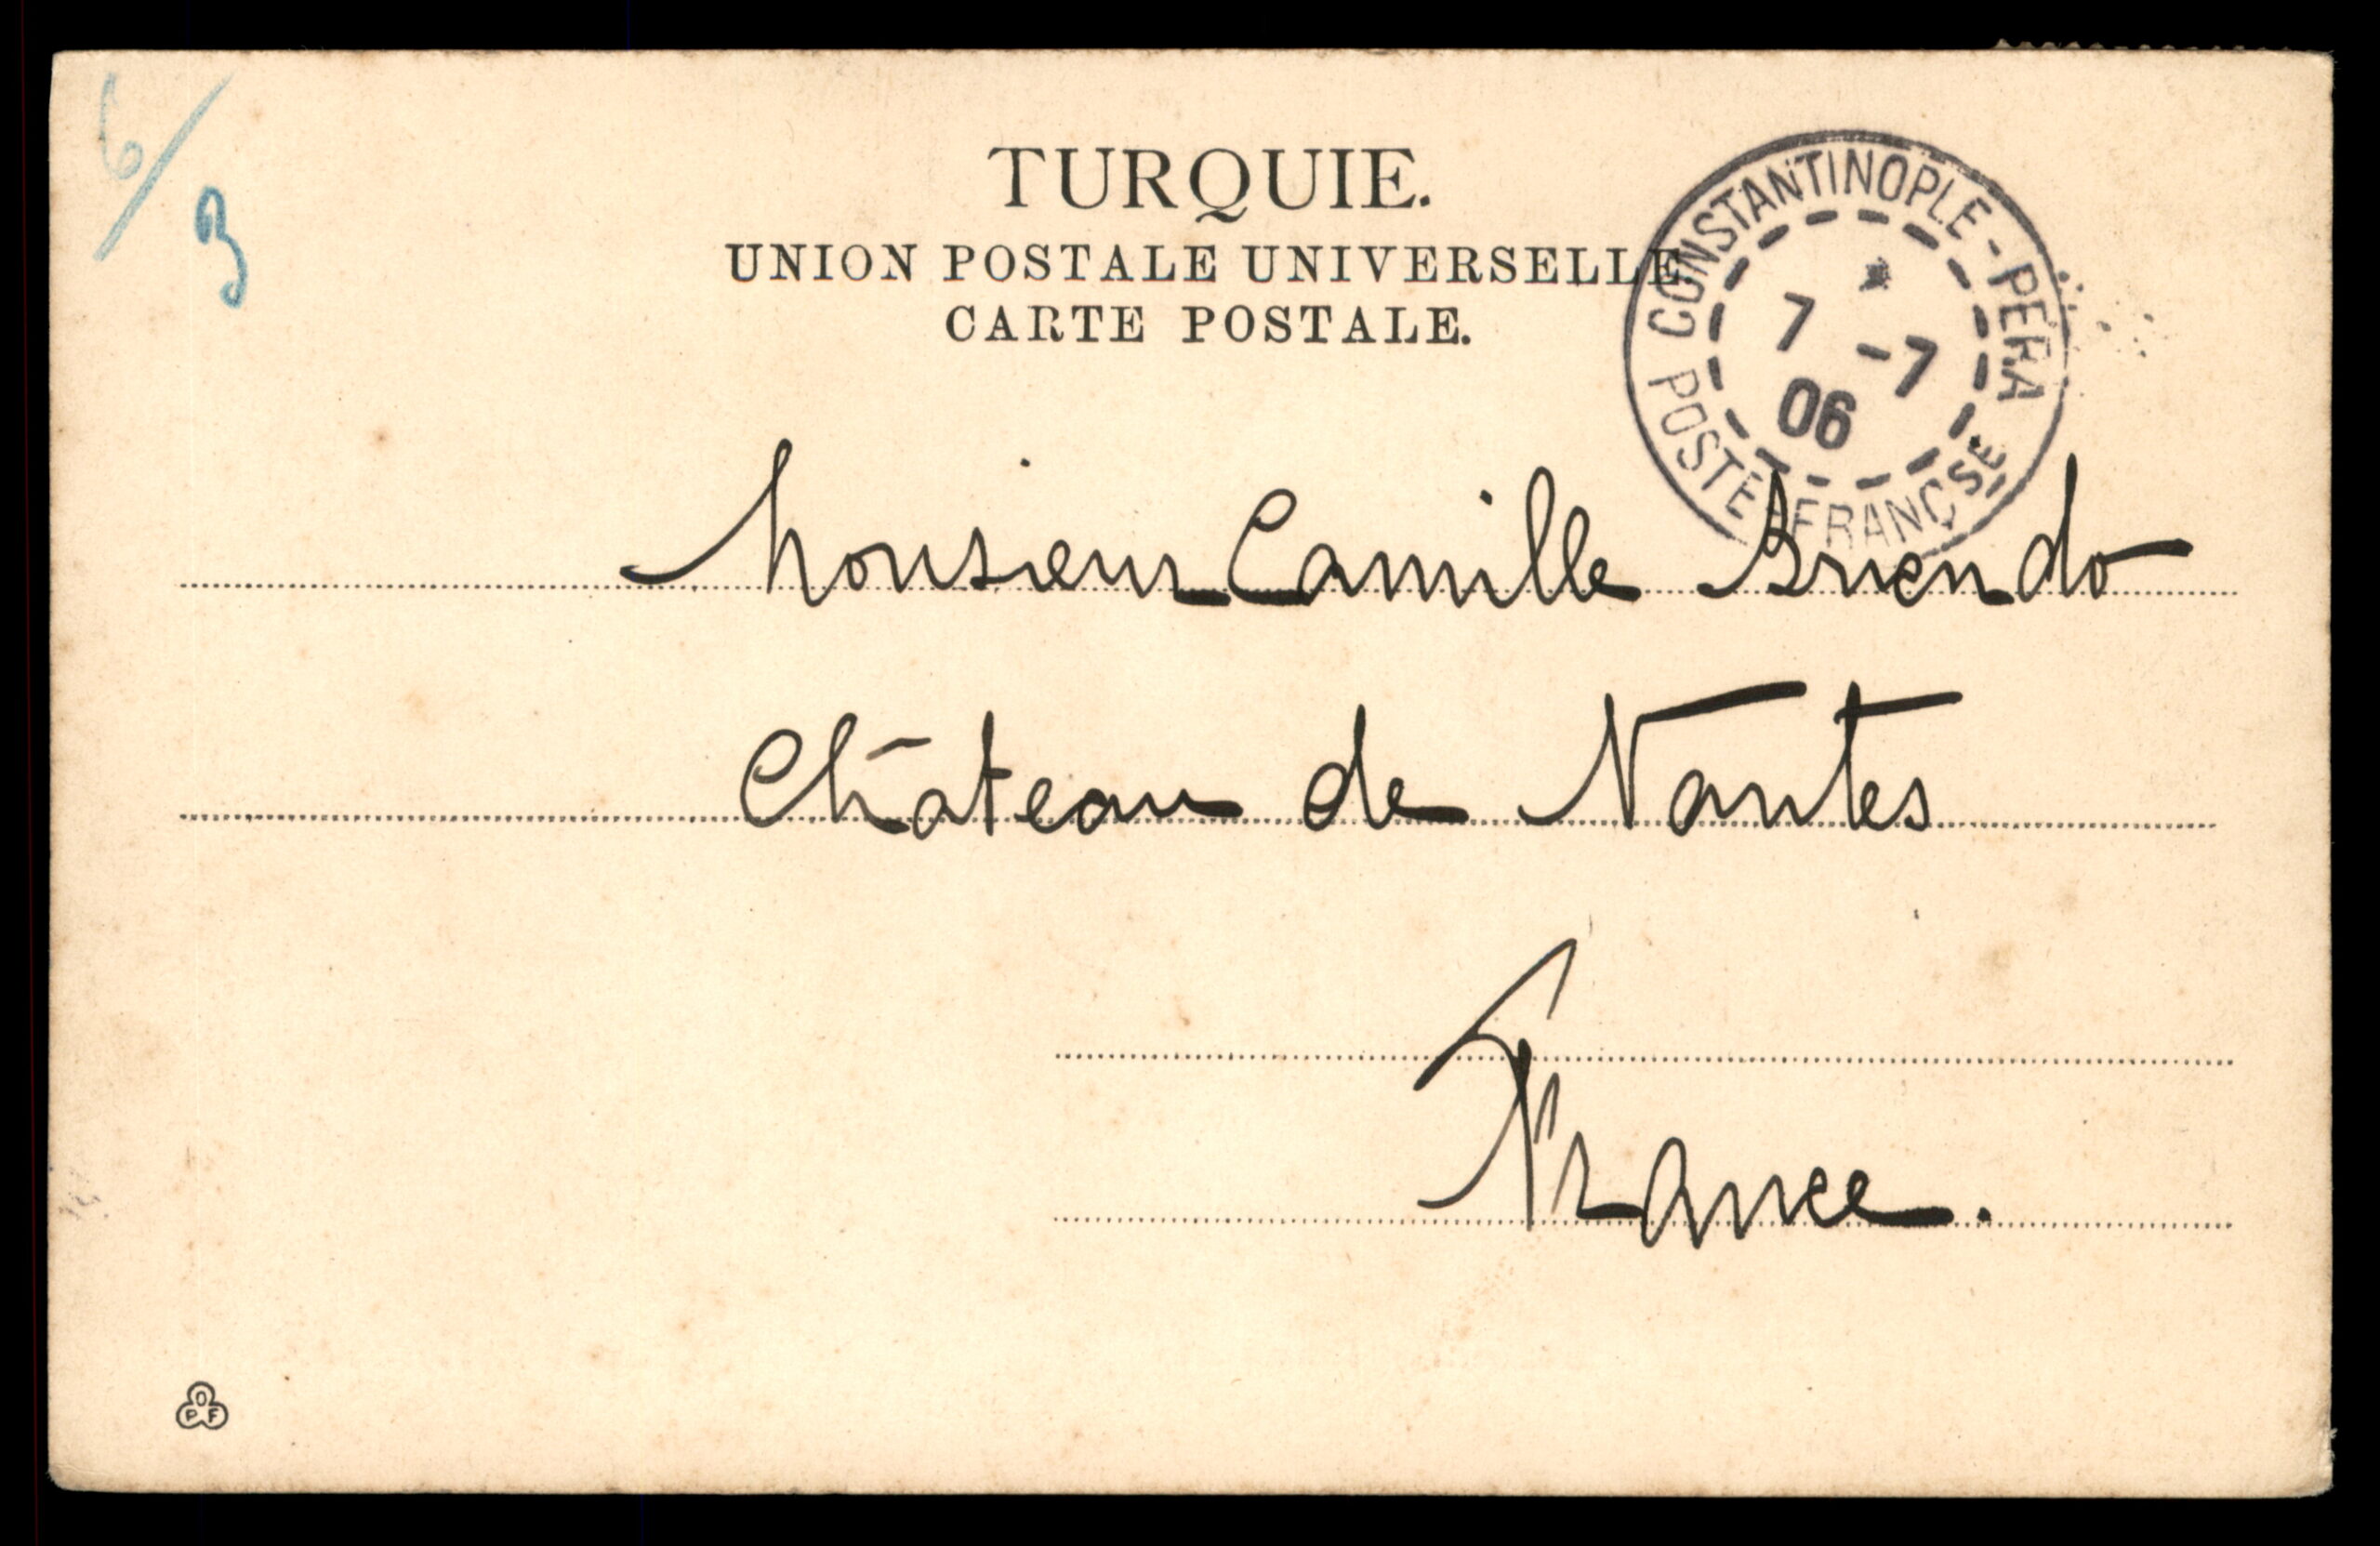 6/3
TURQUIE.
UNION POSTALE UNIVERSELLE
CARTE POSTALE.
CONSTANTINOPLE-PERA
7 -7
06
POSTE FRANÇSE
Monsieur Camille Briendo
Château de Nantes
France.
O
P F